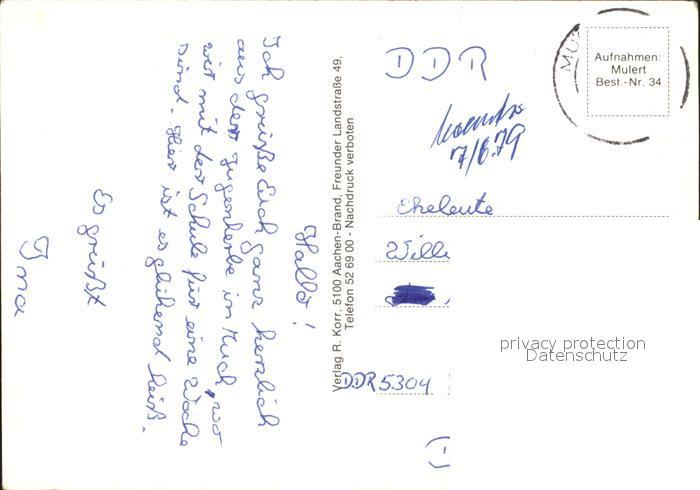 Hallo!
Ich grüße Euch ganz herzlich
aus der Jugendherbe in Much, wo
wir mit der Schule für eine Woche
sind. Hier ist es glühend heiß.
Es grüßt
Ina
Verlag R. Korr, 5100 Aachen-Brand, Freunder Landstraße 49,
Telefon 52 69 00 - Nachdruck verboten
DDR
7/6.79
MU
Aufnahmen:
Mulert
Best.-Nr. 34
Eheleute
Wille
privacy protection
Datenschutz
DDR 5304
D